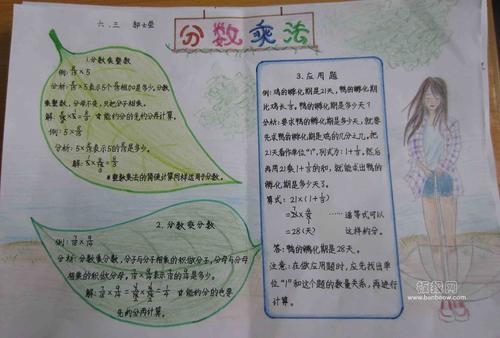 六、三 郭女莹
分数乘法
1.分数乘整数
×5
分析: ×5表示5个 相加是多少。分数
乘整数,分母不变,只把分子相乘。
解: ☆能约分的先约分再计算。
例:5×
分析:5× 表示5的 是多少。
解:
※整数乘法的简便计算同样适用于分数。
2.分数乘分数
例:
分析:分数乘分数,分子与分子相乘的积做分子,分母与分母
相乘的积做分母。 表示 的 是多少。
解: ☆能约分的也要
先约分再计算。
3.应用题
例:鸡的孵化期是21天,鸭的孵化期
比鸡长 。鸭的孵化期是多少天?
分析:要求鸭的孵化期是多少天,就要
先求鸭的孵化期是鸡的几分之几。把
21天看作单位“1”,列式为:1+ 。然后
再用21乘1+ 的和,就能求出鸭的
孵化期是多少天了。
算式:21×(1+ )
=21× ……递等式可以
=28(天) 这样约分。
答:鸭的孵化期是28天。
注意:在做应用题时,应先找出单
位“1”和这个题的数量关系,再进行
计算。
www.banbaow.com